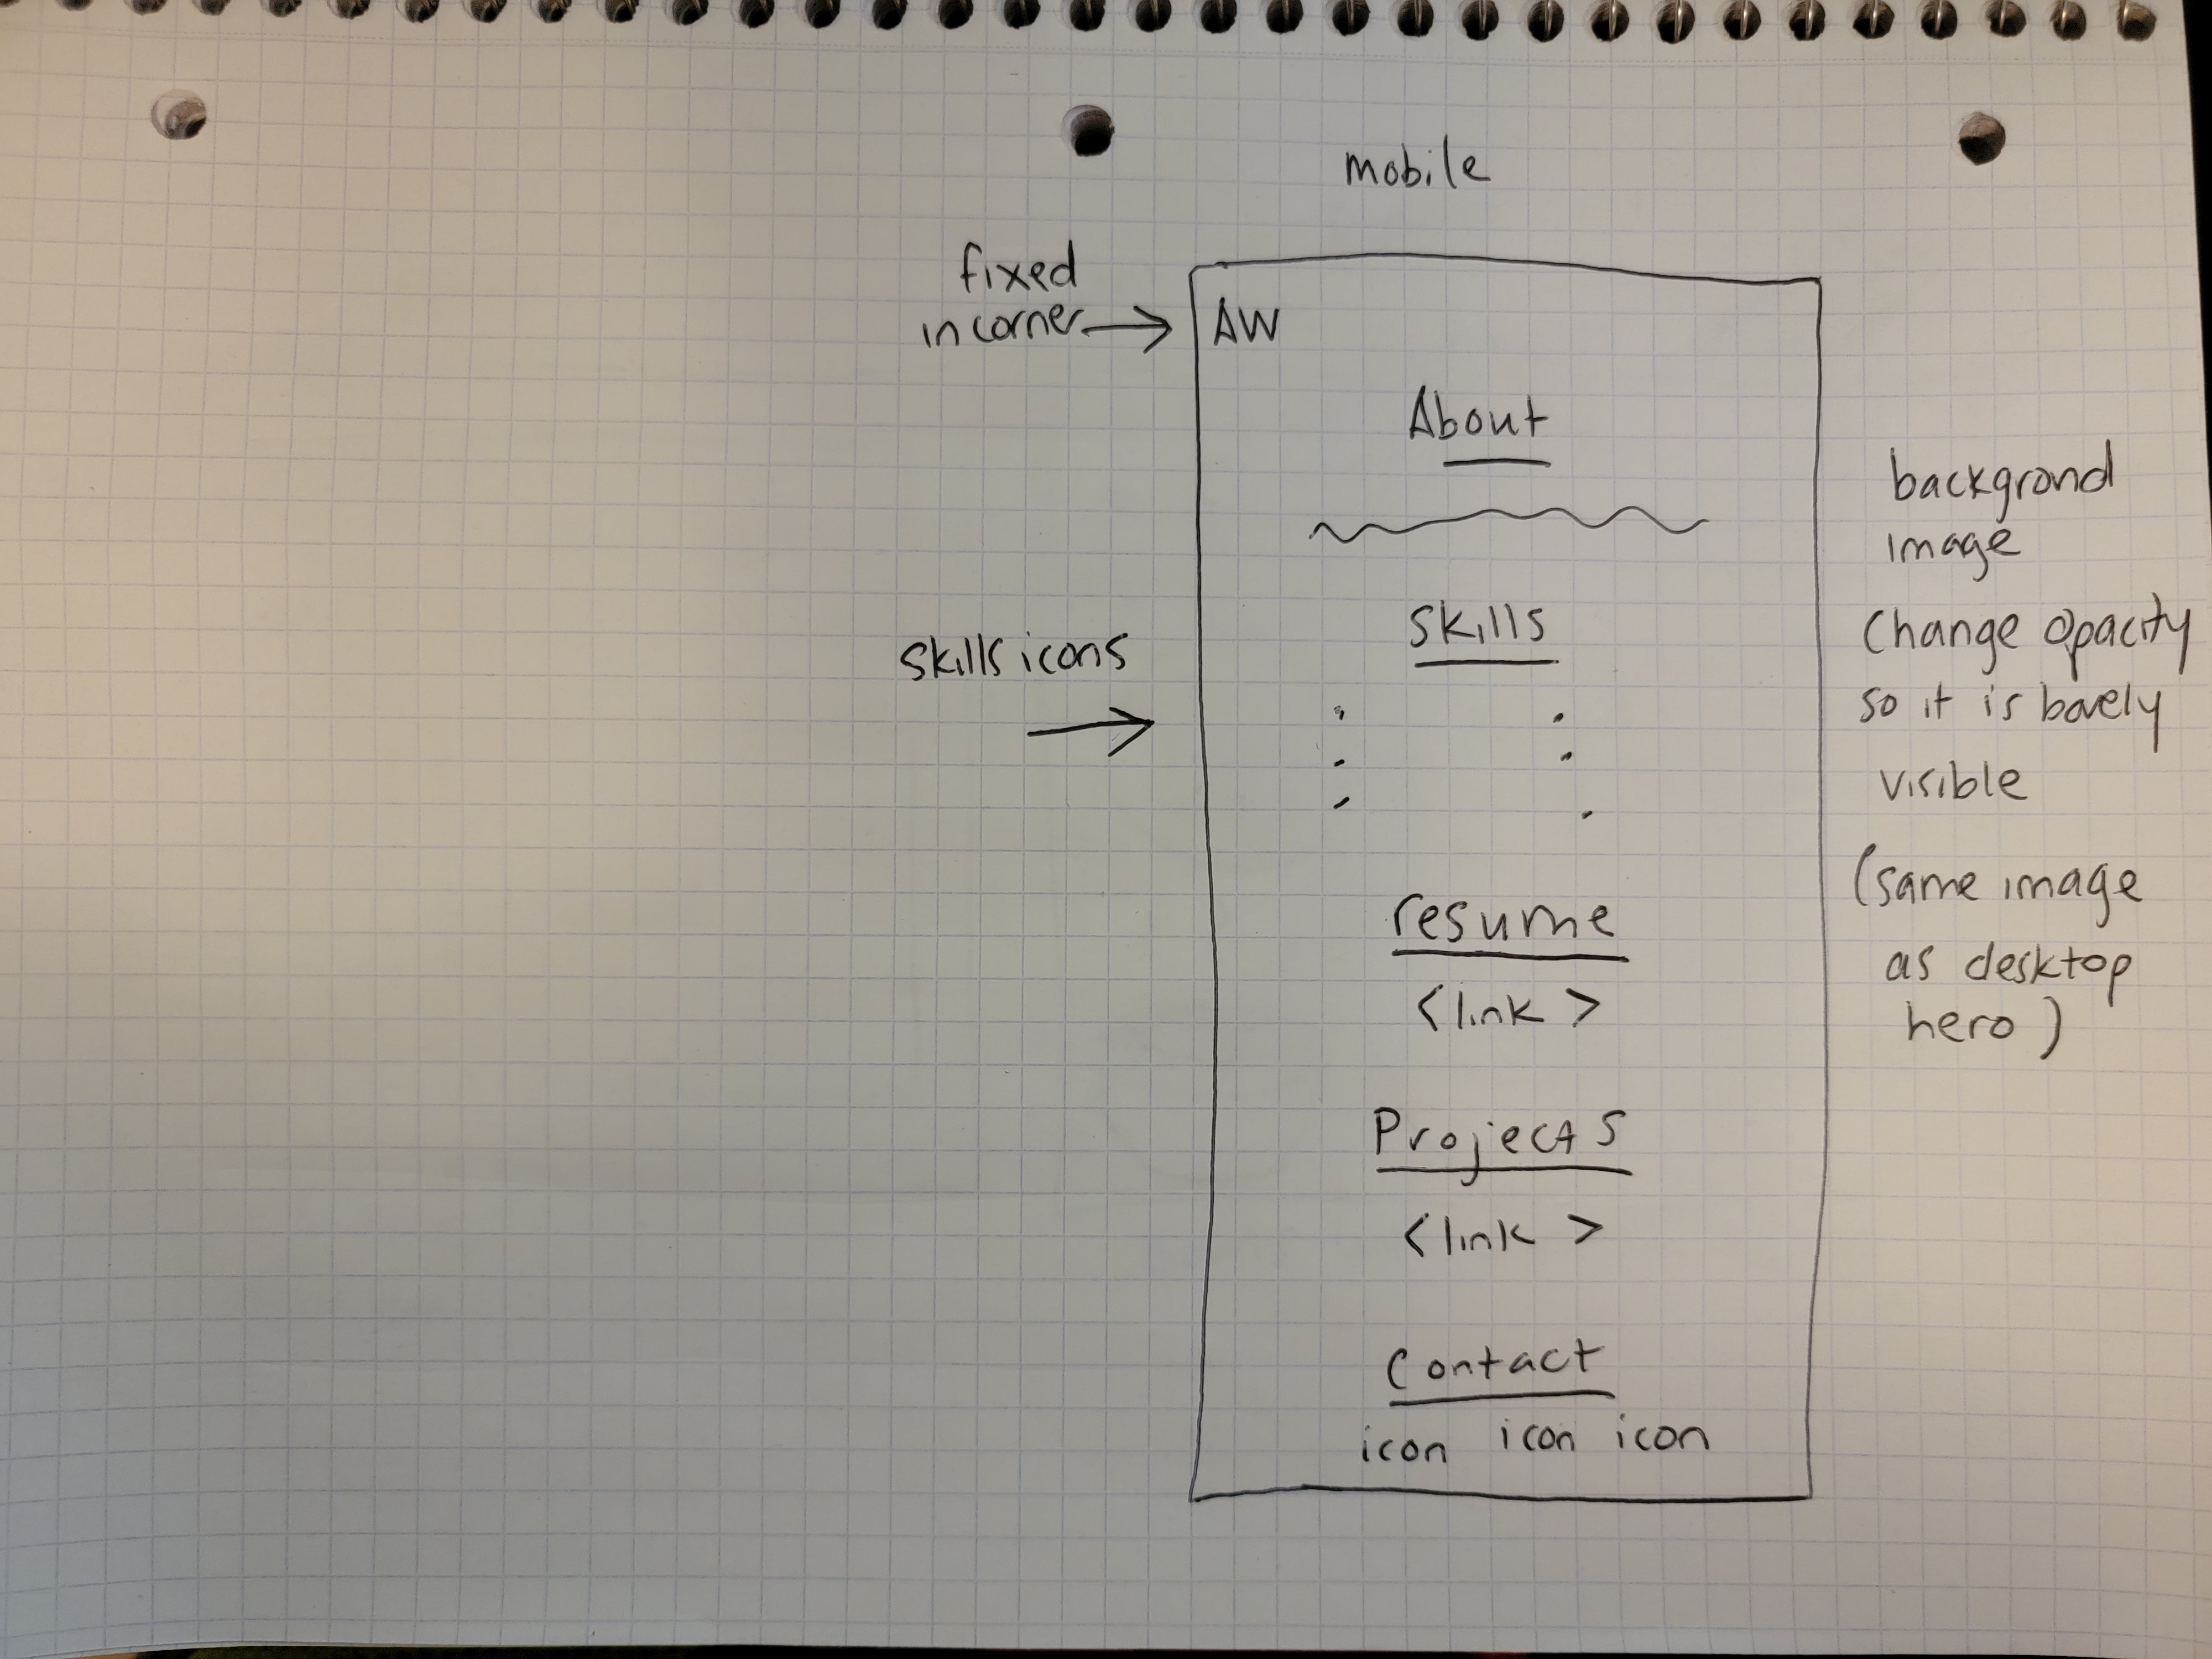 mobile
fixed
in corner
AW
About
skills
skills icons
resume
<link>
Projects
<link>
Contact
icon icon icon
backgrond
image
Change opacity
so it is barely
visible
(same image
as desktop
hero)